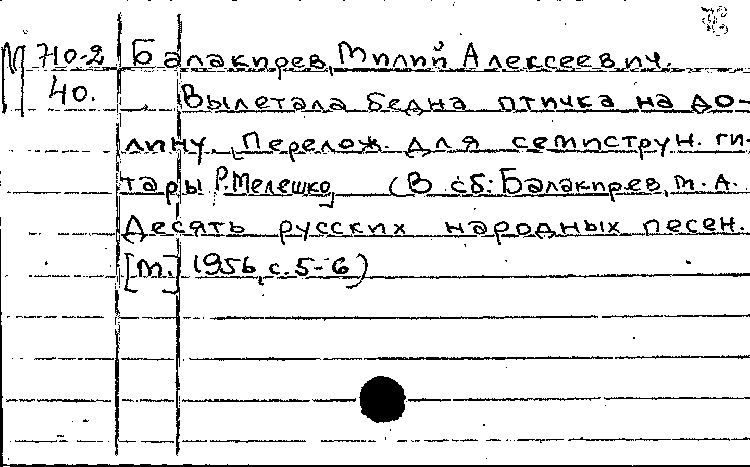 М 710-2 Балакирев, Милий Алексеевич.
40. Вылетала бедна птичка на до-
лину. Перелож. для семиструн. ги-
тары Р. Мелешко (В сб: Балакирев, М. А.
Десять русских народных песен.
[М.] 1956, с. 5-6)